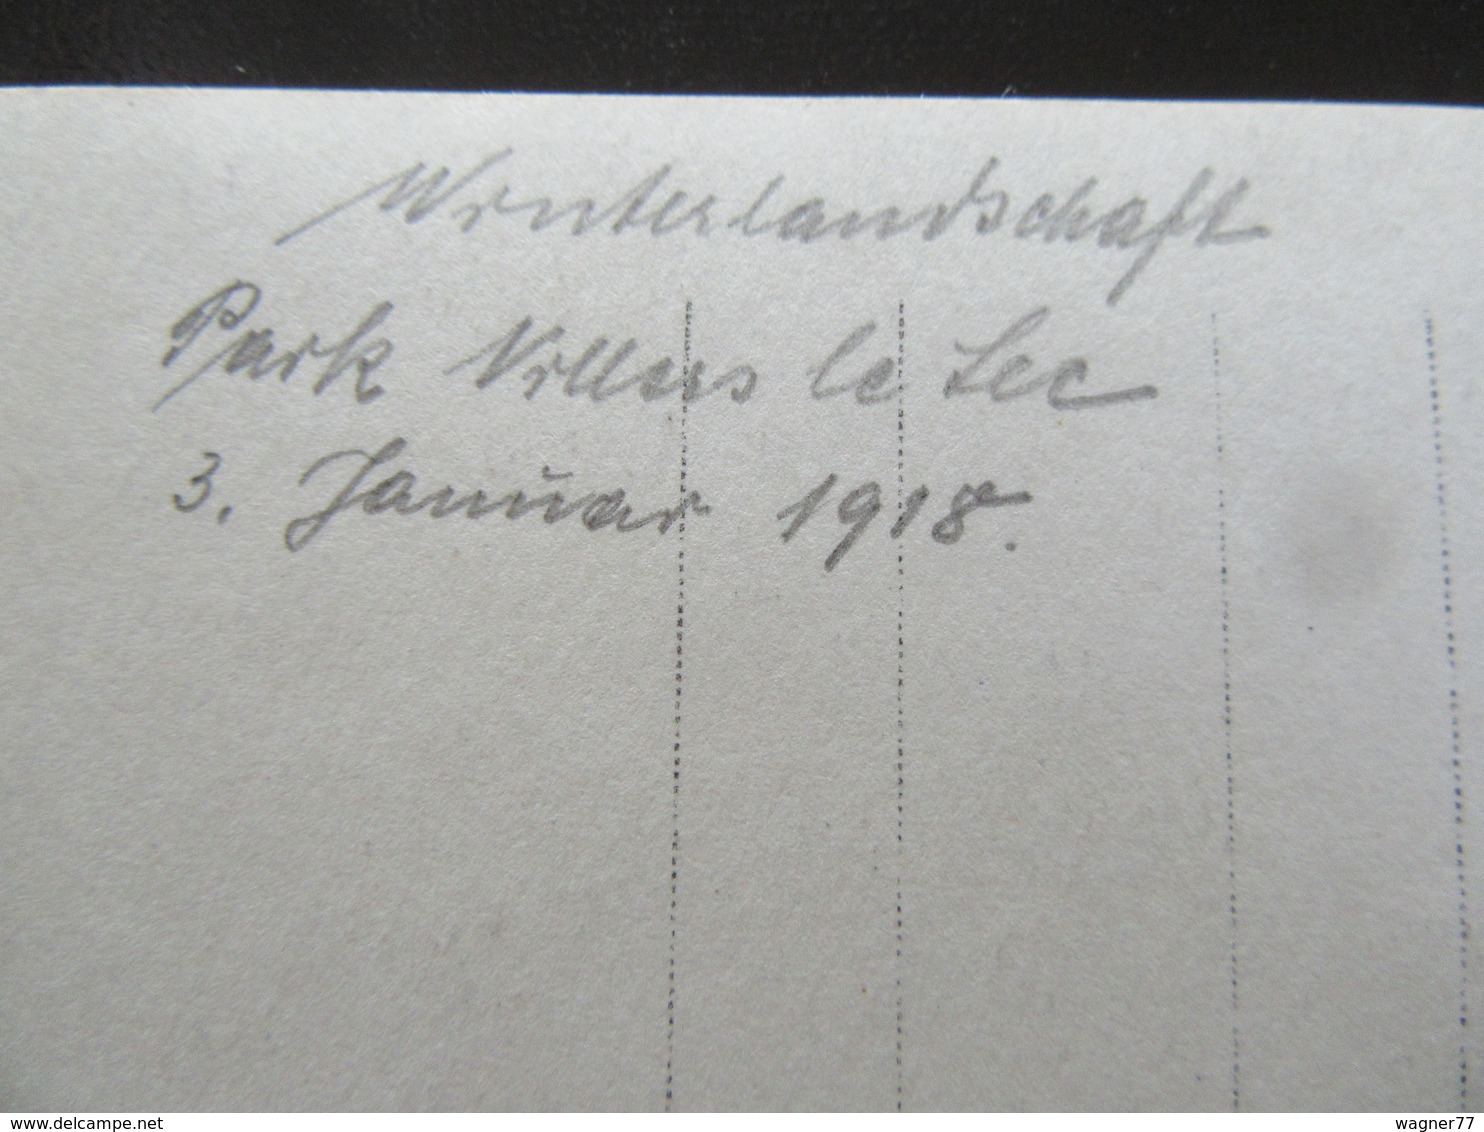 Winterlandschaft
Park Villers le Sec
3. Januar 1918.
www.delcampe.net
wagner77